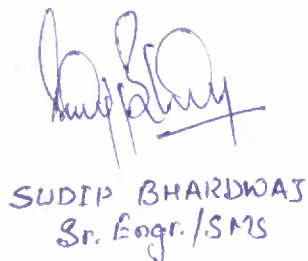 SUDIP BHARDWAJ
Sr. Engr./SMS